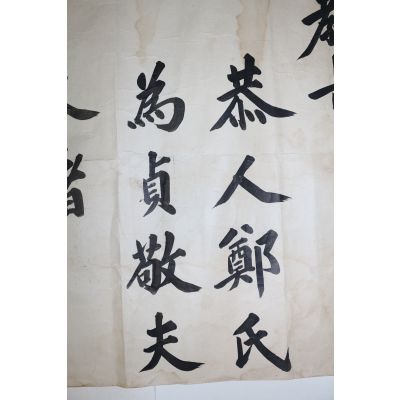 恭人鄭氏
為貞敬夫